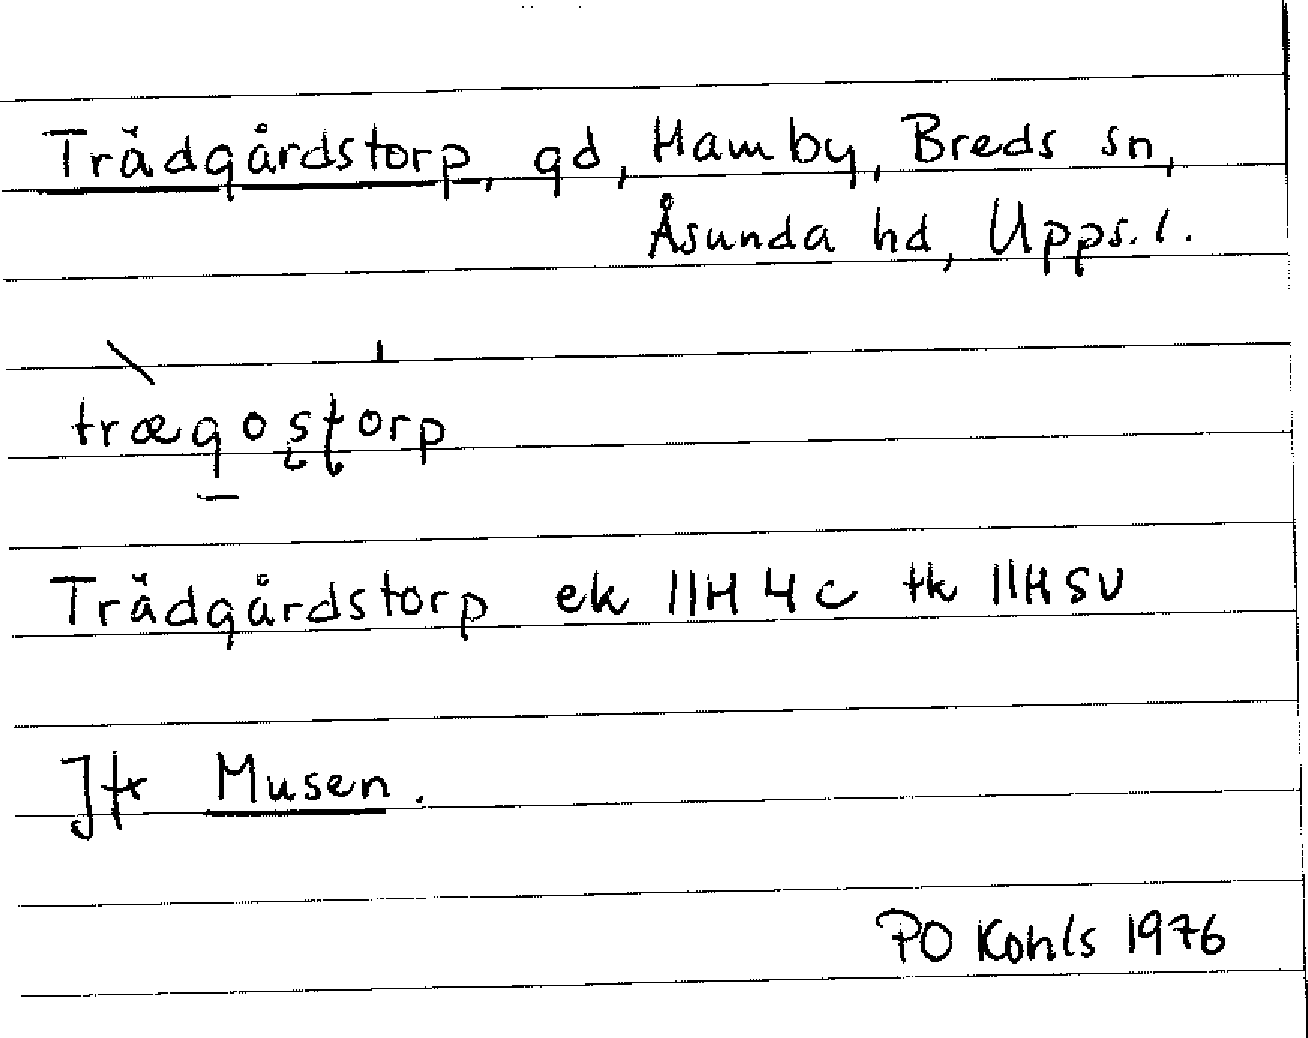 Trädgårdstorp, gd, Hamby, Breds sn,
Åsunda hd, Upps. l.
trægostorp
Trädgårdstorp ek 11H 4c tk 11H SV
Jfr Musen.
PO Kohls 1976